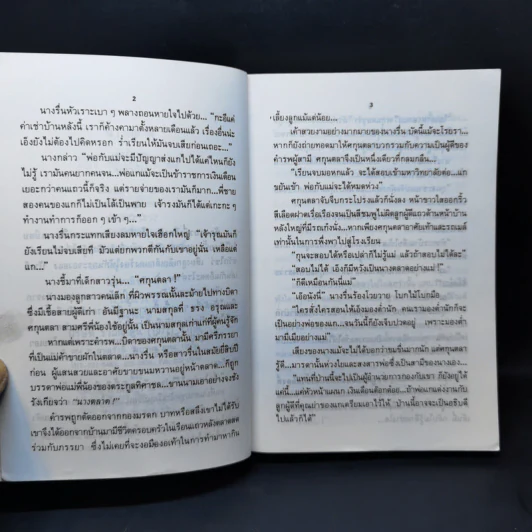 2
นางรื่นหัวเราะเบา ๆ พลางถอนหายใจไปด้วย... “กะอีแค่
ค่าเช่าบ้านหลังนี้ เราก็ค้างคามาตั้งหลายเดือนแล้ว เรื่องอื่นน่ะ
เอ็งยังไม่ต้องไปคิดหรอก ร่ำเรียนให้มันจบเสียก่อนเถอะ...”
นางกล่าว “พ่อกับแม่จะมีปัญญาส่งแกไปได้แค่ไหนก็ยัง
ไม่รู้ เรามันคนยากคนจน...พ่อแกแม้จะเป็นข้าราชการเงินเดือน
เยอะกว่าคนแถวนี้ก็จริง แต่รายจ่ายของเรามันก็มาก...พี่ชาย
สองคนของแกก็ไม่เป็นโล้เป็นพาย เจ้ารงมันก็ได้แต่เกะกะ ๆ
ทำงานทำการก็ออก ๆ เข้า ๆ...”
นางรื่นกระแทกเสียงลมหายใจเฮือกใหญ่ “เจ้ารุณมันก็
ยังเรียนไม่จบเสียที มัวแต่ยกพวกตีกันกับเขาอยู่นั่น เหลือแต่
แก...”
นางชี้มาที่เด็กสาวรุ่น... “ศกุนตลา !”
นางมองลูกสาวคนเล็ก ที่ผิวพรรณนั้นละม้ายไปทางบิดา
ซึ่งมีเชื้อสายผู้ดีเก่า
ศกุนตลา สามศรีพี่น้องใช้อยู่นั้น เป็นนามสกุลเก่าแก่ที่ผู้คนรู้จัก
หากแต่เพราะคำรพ...บิดาของศกุนตลานั้น มามีศรีภรรยา
ที่เป็นแม่ค้าขายผักในตลาด...นางรื่น หรือสาวรื่นในสมัยยี่สิบปี
ก่อน ผู้แสนสวยและอาศัยขายขนมหวานอยู่หน้าตลาด...ก็ถูก
บรรดาพ่อแม่พี่น้องของตระกูลทิศาชล...ขานนามเอาอย่างจงชัง
รังเกียจว่า “นางตลาด !”
คำรพถูกตัดออกจากกองมรดก บาทหรือสลึงเขาไม่ได้รับ
เขาจึงได้ออกจากบ้านมามีชีวิตครอบครัวในเรือนแถวหลังตลาดสด
ร่วมกับภรรยา ซึ่งไม่เคยที่จะงอมืองอเท้าในการทำมาหากิน
3
เลี้ยงลูกแม้แต่น้อย...
เค้าสวยงามอย่างมากมายของนางรื่น บัดนี้แม้จะโรยรา...
หากก็ยังถ่ายทอดมาให้ศกุนตลาบวกรวมกับความเป็นผู้ดีของ
คำรพผู้สามี ศกุนตลาจึงเป็นหนึ่งเดียวที่กลมกลืน...
“เรียนจบมอหกแล้ว จะได้สอบเข้ามหาวิทยาลัยต่อ...แก
ขยันเข้า พ่อกับแม่จะได้หมดห่วง”
ศกุนตลาจับจีบกระโปรงแล้วก็นั่งลง หน้าขาวใสออกริ้ว
สีเลือดฝาดเรื่อเรืองจนเป็นสีชมพูไม่ผิดลูกผู้ดีแถวด้านหน้าบ้าน
หลังใหญ่ที่มีรถเก๋งนั่ง...หากเพียงศกุนตลาอาศัยเท้าและรถเมล์
เท่านั้นในการพึ่งพาไปสู่โรงเรียน
“กุนจะสอบได้หรือเปล่าก็ไม่รู้แม่ แล้วถ้าสอบไม่ได้ล่ะ”
“สอบไม่ได้ เอ็งก็มีหวังเป็นนางตลาดอย่างแม่!”
“ก็ดีเหมือนกันนี่แม่”
“เอ๊อนังนี่” นางรื่นร้องโวยวาย โบกไม้โบกมือ
“ใครสั่งใครสอนให้เอ็งมองต่ำนัก คนเรามองต่ำมักก็จะ
เป็นอย่างพ่อของแก...จนวันนี้ก็ยังเจ็บปวดอยู่ เพราะมองต่ำ
มามีเมียอย่างแม่”
เสียงของนางแม้จะไม่ได้บอกว่าขมขื่นมากนัก แต่ศกุนตลา
รู้...มารดานั้นห่วงใยและสงสารพ่อนัก...พ่อซึ่งเป็นสามีของนางรื่น...
“แทนที่ป่านนี้จะไปเป็นผู้อำนวยการกองกับเขา ก็ยังอยู่ได้
แค่นี้...แต่หัวหน้าแผนก เงินเดือนก็ยังตันเอ๊าตัน...ถ้าพ่อแกแต่งงานกับ
ลูกผู้ดีที่คุณย่าของแกเตรียมเอาไว้ให้ ป่านนี้อาจจะเป็นอธิบดี
ไปแล้วก็ได้”